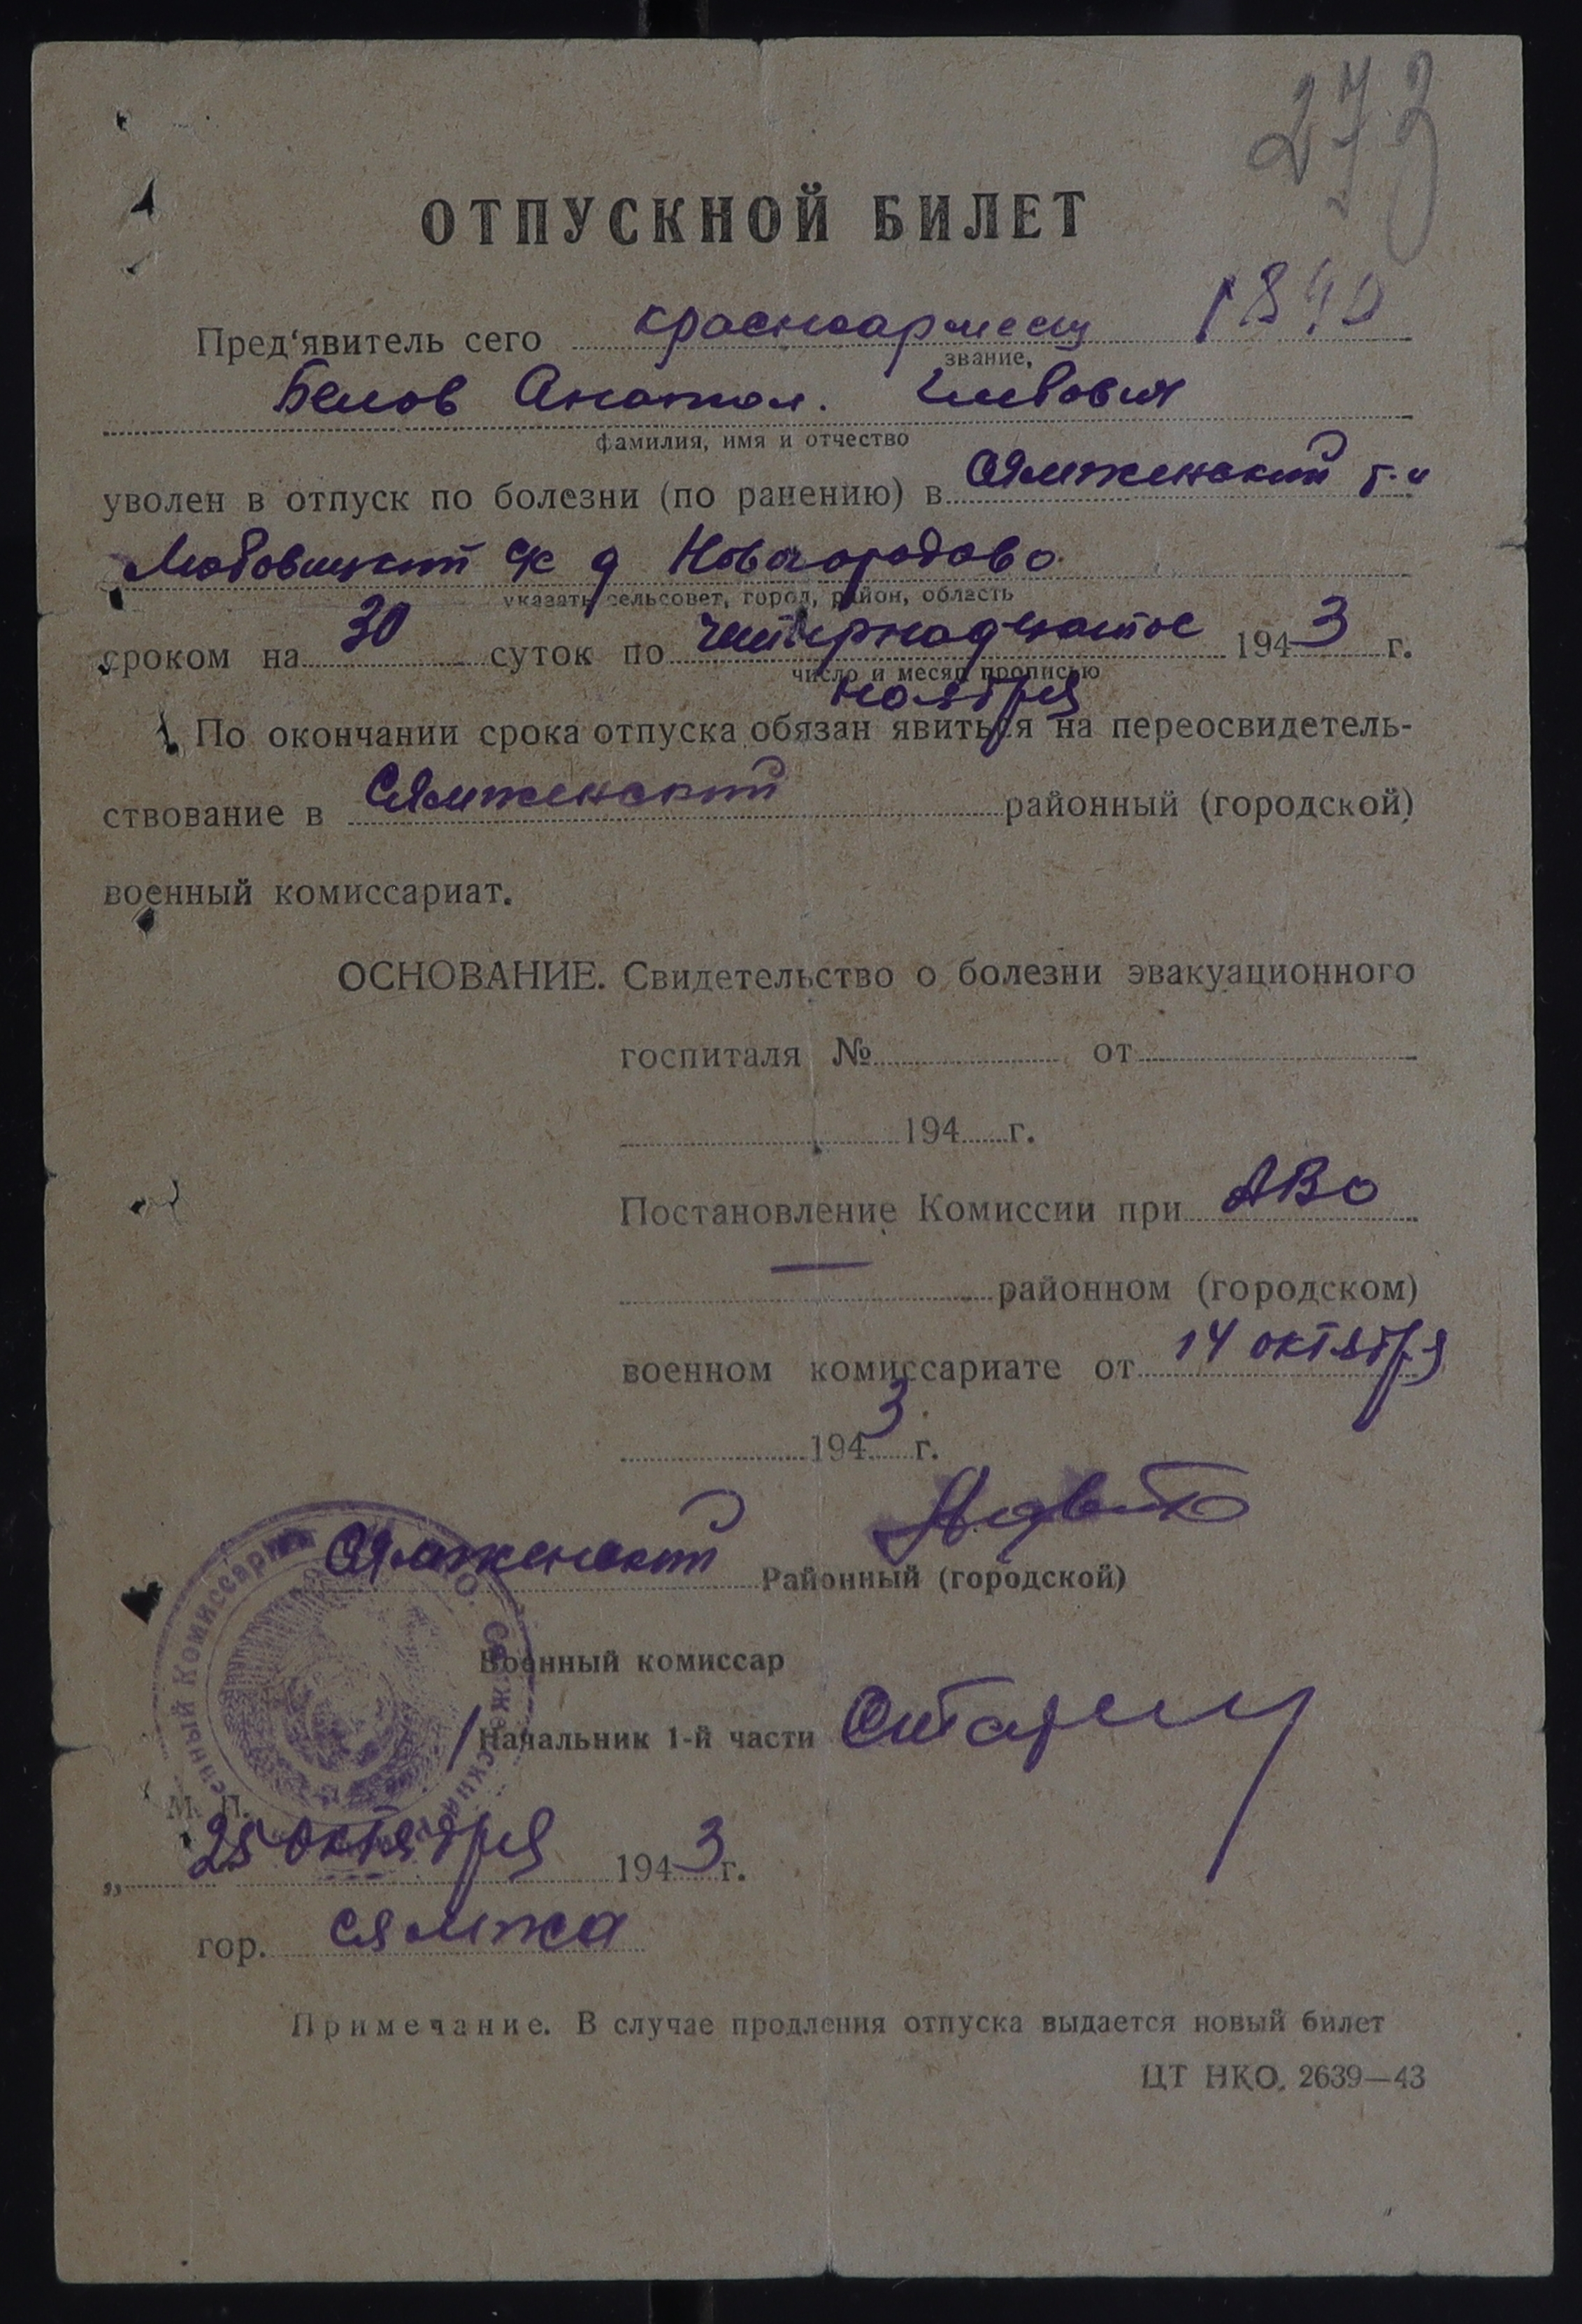 273
ОТПУСКНОЙ БИЛЕТ
Пред'явитель сего красноармеец 1890
звание,
Белов Анатол.
фамилия, имя и отчество
уволен в отпуск по болезни (по ранению) в Сямженский р-н
с/с д Новогородово
указать сельсовет, город, район, область
сроком на 30 суток по четырнадцатое 1943 г.
число и месяц прописью
ноября
По окончании срока отпуска обязан явиться на переосвидетель-
ствование в Сямженский районный (городской)
военный комиссариат.
ОСНОВАНИЕ. Свидетельство о болезни эвакуационного
госпиталя № от
194 г.
Постановление Комиссии при АВО
— районном (городском)
военном комиссариате от 14 октября
1943 г.
Сямженский Районный (городской)
Военный комиссар
/ Начальник 1-й части
М. П.
„ 25 октября 1943 г.
гор. Сямжа
Примечание. В случае продления отпуска выдается новый билет
ЦТ НКО. 2639—43